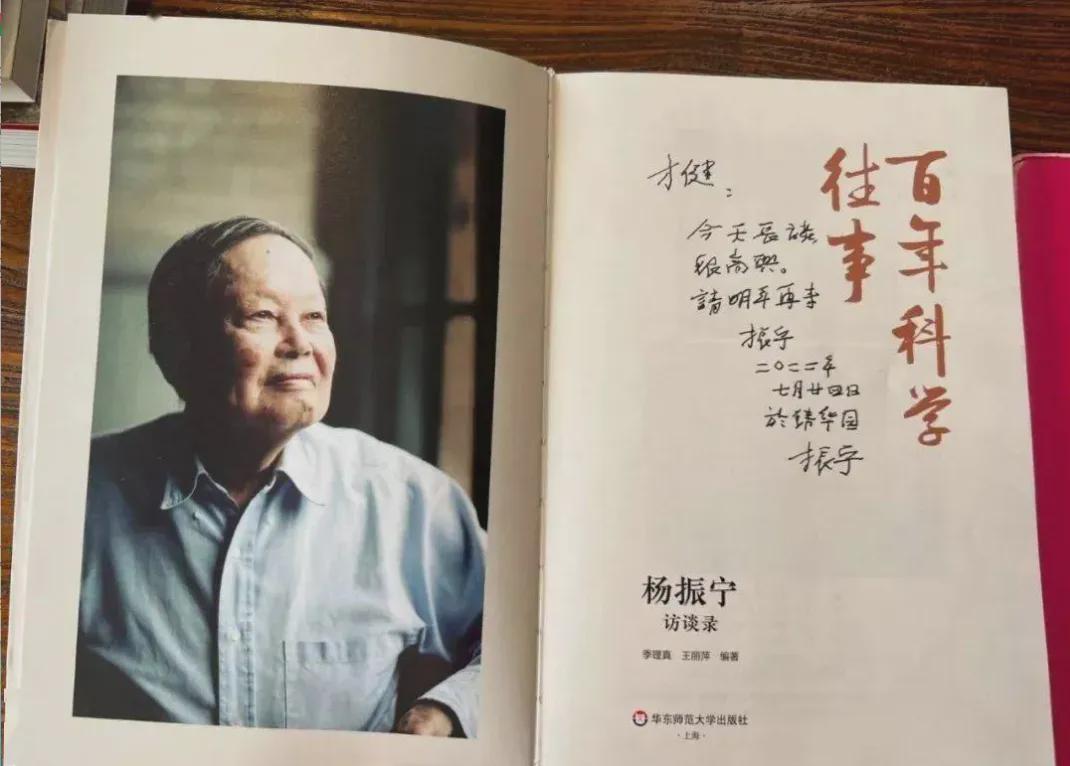 百年科学
往事
才健：
今天長談
很高興。
請明年再来
振宁
二〇二二年
七月廿四日
於清华园
振宁
杨振宁
访谈录
季理真 王丽萍 编著
华东师范大学出版社
·上海·